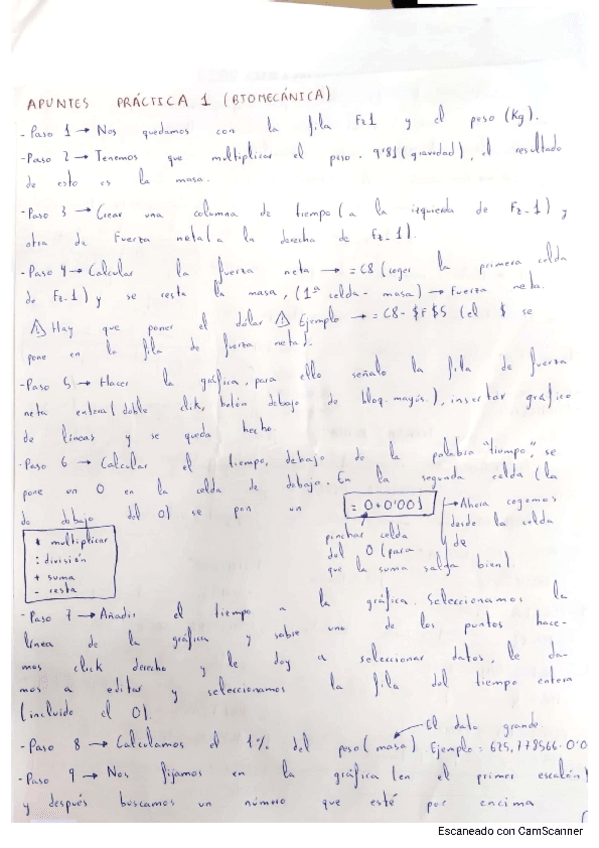 APUNTES PRÁCTICA 1 (BIOMECÁNICA)
- Paso 1 → Nos quedamos con la fila Fz1 y el peso (Kg).
- Paso 2 → Tenemos que multiplicar el peso · 9'81 (gravedad), el resultado
de esto es la masa.
- Paso 3 → Crear una columna de tiempo (a la izquierda de Fz-1) y
otra de Fuerza neta (a la derecha de Fz-1).
- Paso 4 → Calcular la fuerza neta → = C8 (coger la primera celda
de Fz-1) y se resta la masa, (1ª celda - masa) → Fuerza neta.
⚠ Hay que poner el dólar ⚠ Ejemplo → = C8-$F$5 (el $ se
pone en la fila de fuerza neta).
- Paso 5 → Hacer la gráfica, para ello señalo la fila de fuerza
neta entera (doble click, botón debajo de bloq. mayús.), insertar gráfico
de líneas y se queda hecho.
- Paso 6 → Calcular el tiempo, debajo de la palabra "tiempo", se
pone un 0 en la celda de debajo. En la segunda celda (la
de debajo del 0) se pon un = 0+0'001 → Ahora cogemos
desde la celda
de
pinchar celda
del 0 (para
que la suma salga bien).
* multiplicar
: división
+ suma
- resta
- Paso 7 → Añadir el tiempo a la gráfica. Seleccionamos la
línea de la gráfica y sobre uno de los puntos hace-
mos click derecho y le doy a seleccionar datos, le da-
mos a editar y seleccionamos la fila del tiempo entera
(incluido el 0).
El dato grande.
- Paso 8 → Calculamos el 1% del peso (masa). Ejemplo: 625,778566·0'0
- Paso 9 → Nos fijamos en la gráfica (en el primer escalón)
y después buscamos un número que esté por encima
Escaneado con CamScanner